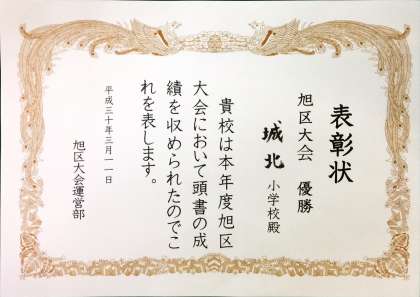 表彰状
旭区大会　優勝
城北小学校殿
貴校は本年度旭区
大会において頭書の成
績を収められたのでこ
れを表します。
平成三十年三月一一日
旭区大会運営部